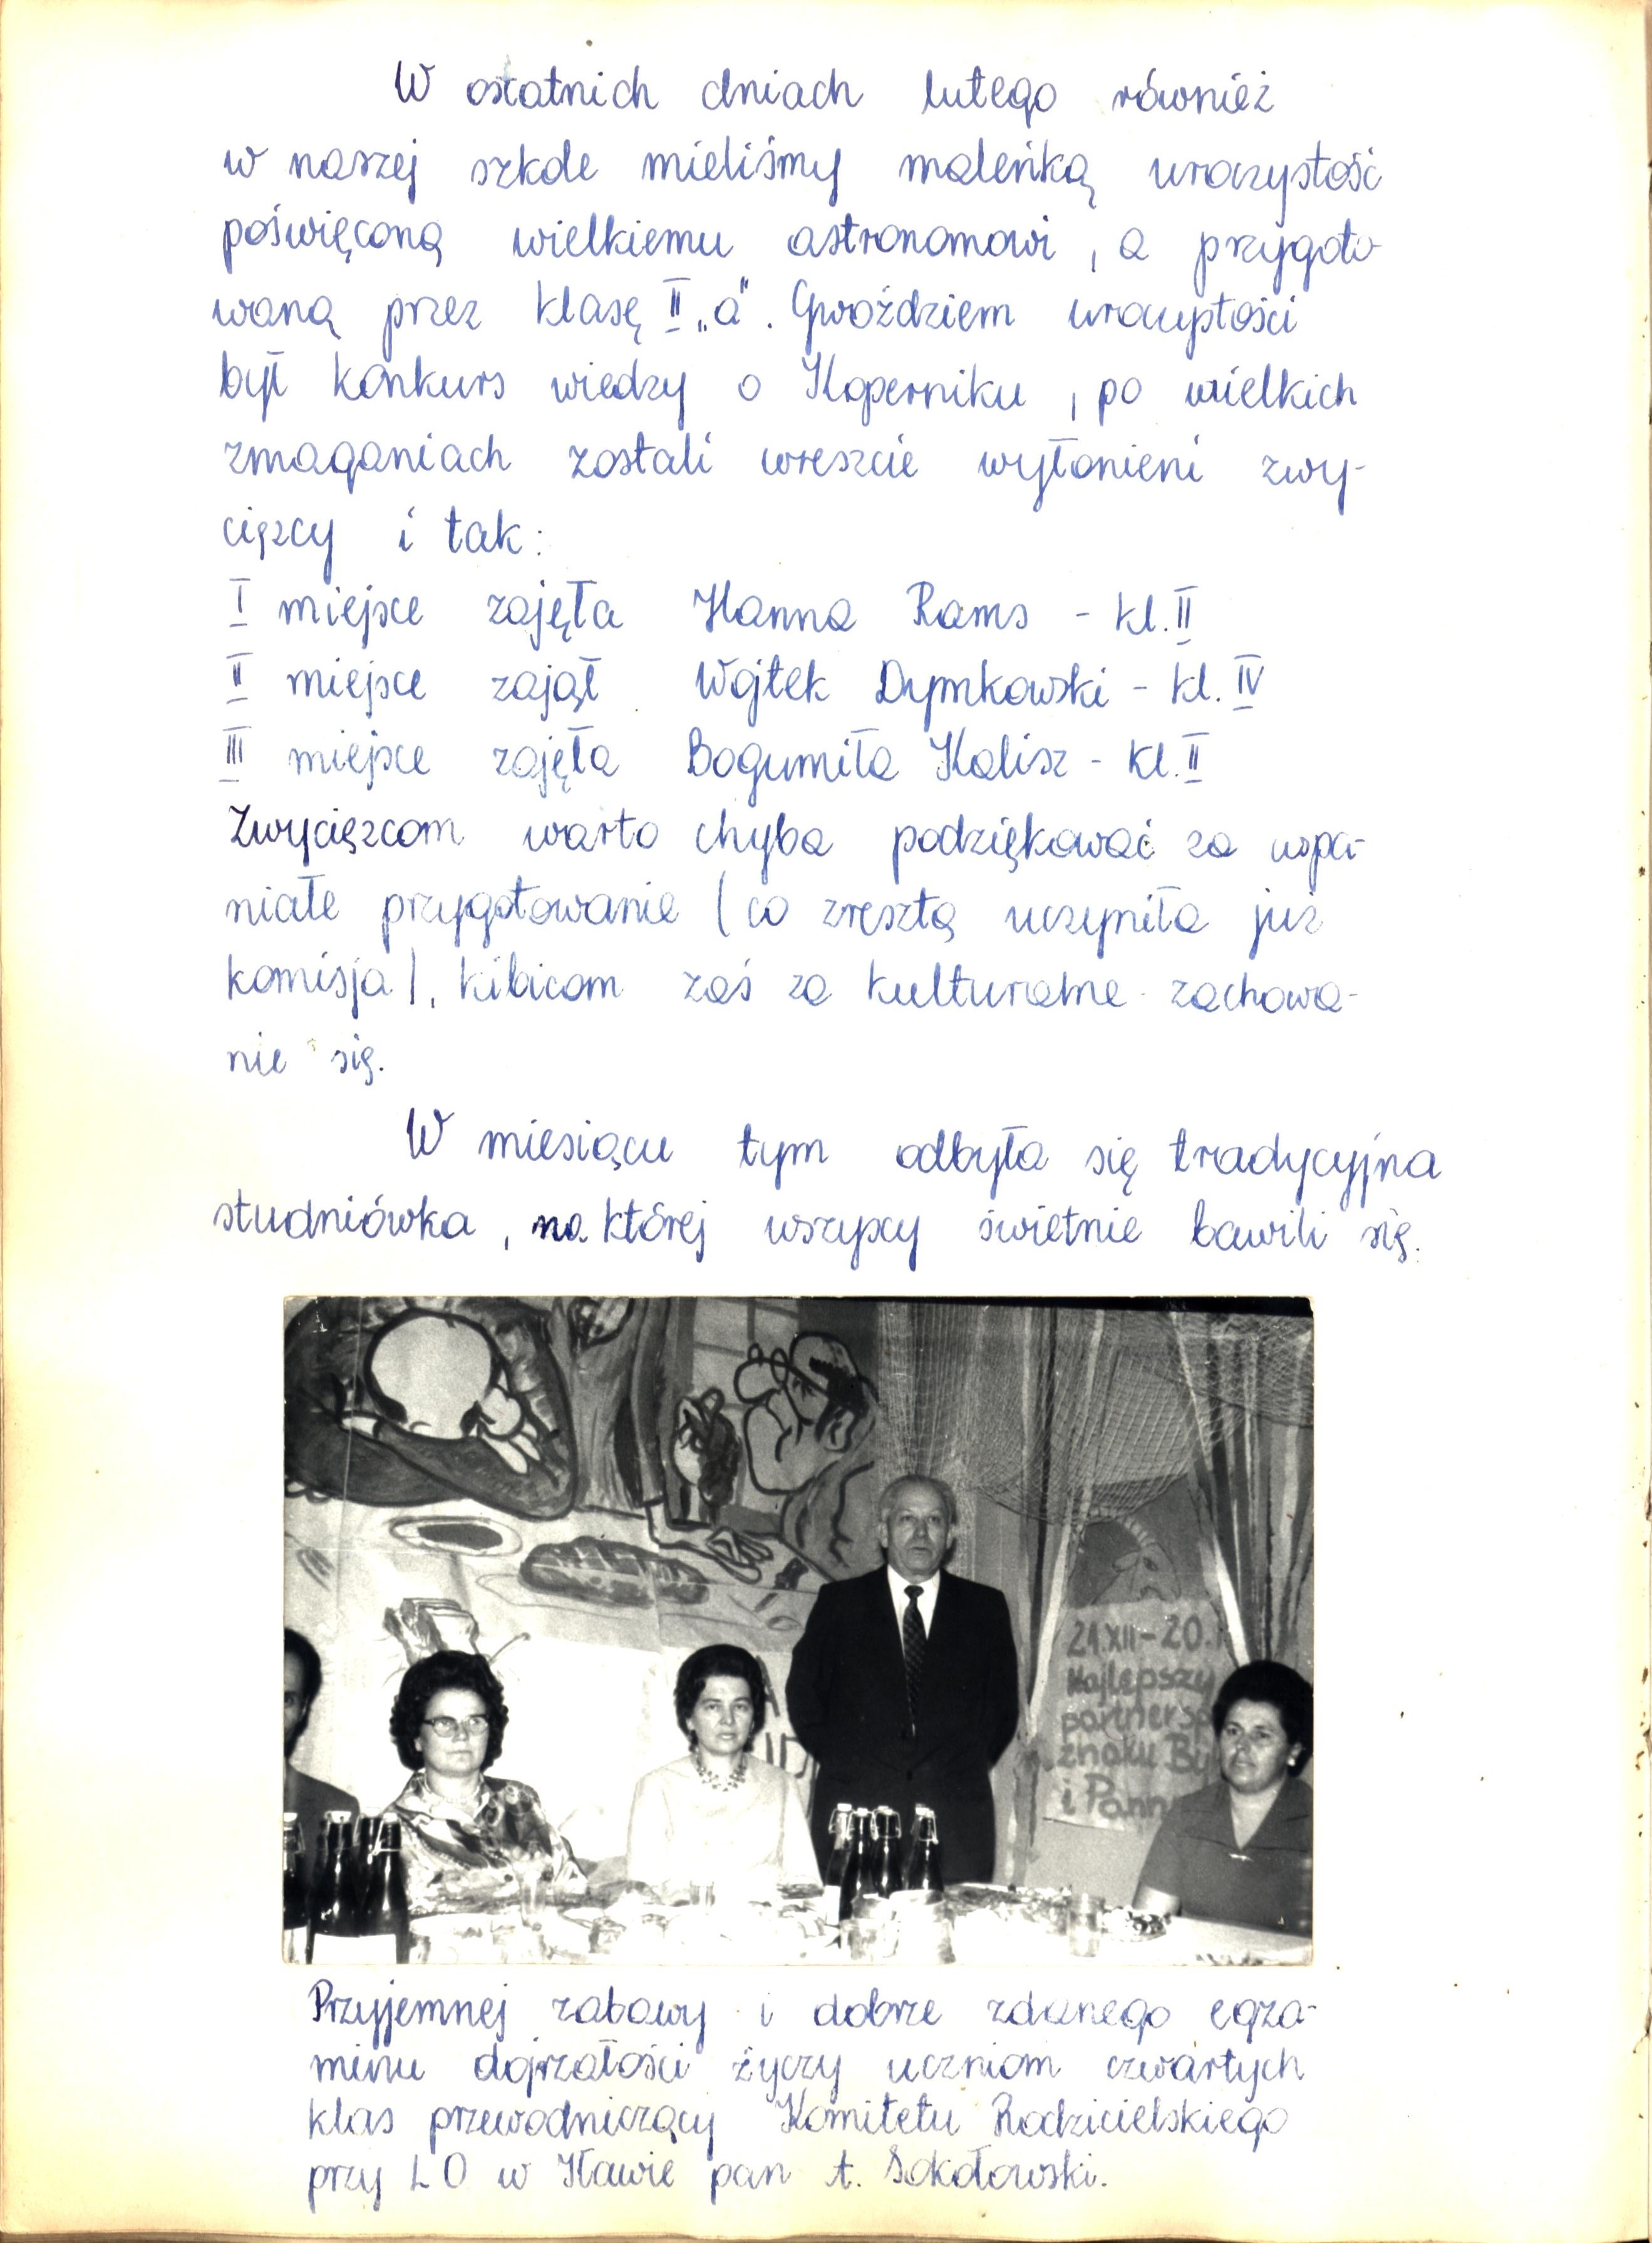 W ostatnich dniach lutego również
w naszej szkole mieliśmy maleńką uroczystość
poświęconą wielkiemu astronomowi, a przygoto
waną przez klasę II „a". Gwoździem uroczystości
był konkurs wiedzy o Koperniku, po wielkich
zmaganiach zostali wreszcie wyłonieni zwy-
cięzcy i tak:
I miejsce zajęła Hanna Rams - kl. II
II miejsce zajął Wojtek Dymkowski - kl. IV
III miejsce zajęła Bogumiła Kalisz - kl. II
Zwycięzcom warto chyba podziękować za wspa-
niałe przygotowanie (co zresztą uczyniła już
komisja), kibicom zaś za kulturalne zachowa-
nie się.
W miesiącu tym odbyła się tradycyjna
studniówka, na której wszyscy świetnie bawili się.
21.XII-20.I
Najlepszy
partner sp
znaku By
i Pann
Przyjemnej zabawy i dobrze zdanego egza-
minu dojrzałości życzy uczniom czwartych
klas przewodniczący Komitetu Rodzicielskiego
przy LO w Iławie pan t. Sokołowski.